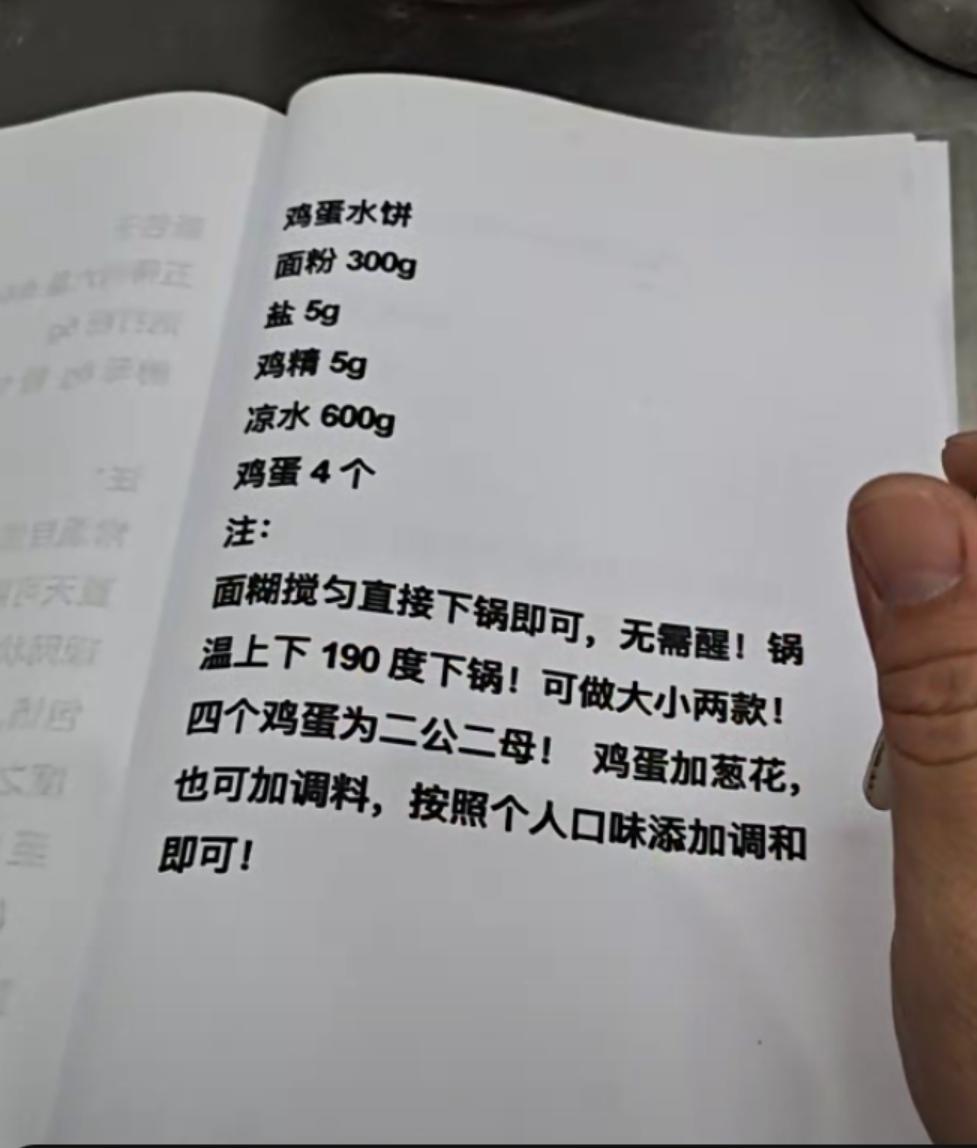 鸡蛋水饼
面粉 300g
盐 5g
鸡精 5g
凉水 600g
鸡蛋 4 个
注：
面糊搅匀直接下锅即可，无需醒！锅
温上下 190 度下锅！可做大小两款！
四个鸡蛋为二公二母！ 鸡蛋加葱花，
也可加调料，按照个人口味添加调和
即可！